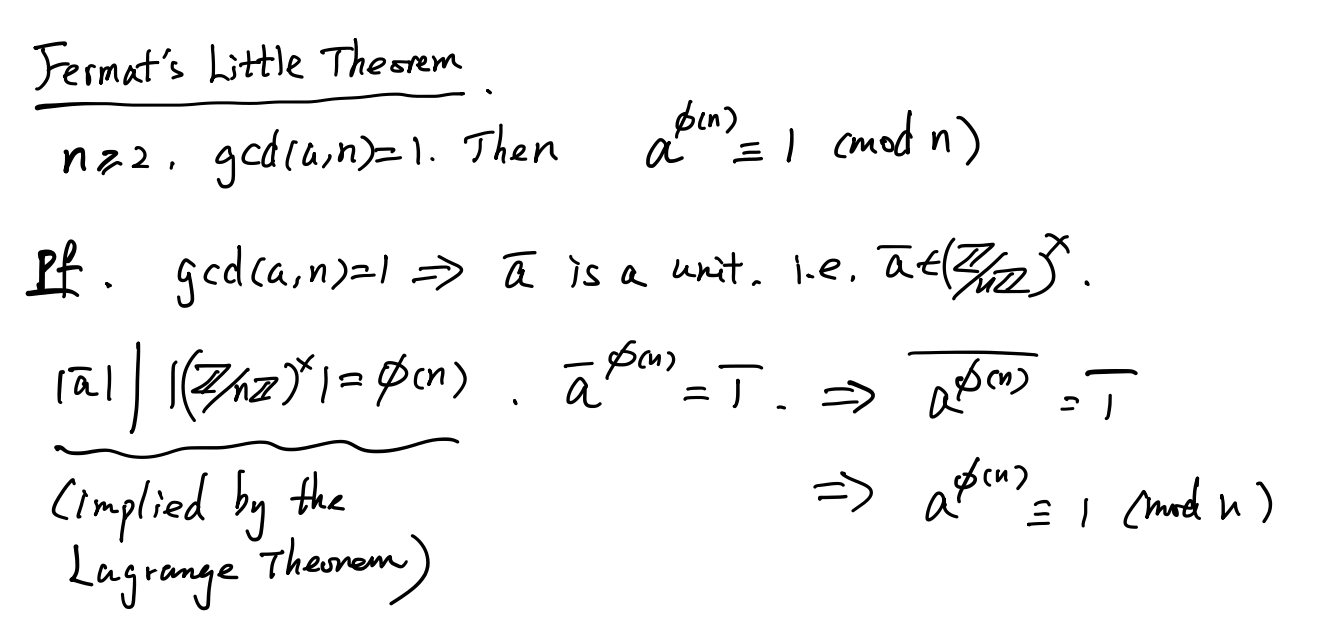 Fermat's Little Theorem.
n ≥ 2, gcd(a,n)=1. Then a^{ϕ(n)} ≡ 1 (mod n)
Pf. gcd(a,n)=1 ⇒ \overline{a} is a unit. i.e. \overline{a} ∈ (ℤ/nℤ)^×.
|\overline{a}| | |(ℤ/nℤ)^×| = ϕ(n). \overline{a}^{ϕ(n)} = \overline{1}. ⇒ \overline{a^{ϕ(n)}} = \overline{1}
(implied by the
Lagrange Theorem)
⇒ a^{ϕ(n)} ≡ 1 (mod n)